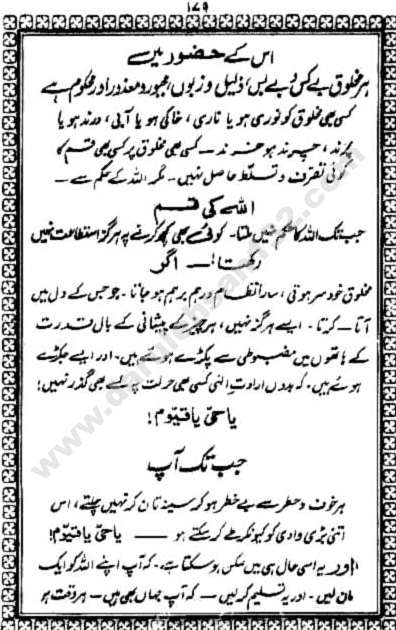 ۱۷۹
اس کے حضور میں
ہر مخلوق بے کس و بے بس، ذلیل و زبوں، مجبور و معذور اور محکوم ہے
کسی بھی مخلوق کو نوری ہو یا ناری، خاکی ہو یا آبی، درند ہو یا
پرند، چرند ہو خزند — کسی بھی مخلوق پر کسی بھی قسم کا
کوئی تصرف و تسلط حاصل نہیں۔ مگر اللہ کے حکم سے —
اللہ کی قسم
جب تک اللہ کا حکم نہیں ملتا۔ کوئی شے بھی کچھ کرنے پر ہرگز استطاعت نہیں
رکھتا! — اگر
مخلوق خود سر ہوتی، سارا نظام درہم برہم ہو جاتا۔ جو جس کے دل میں
آتا — کرتا۔ ایسے ہرگز نہیں، ہر چیز کے پیشانی کے بال قدرت
کے ہاتھوں میں مضبوطی سے پکڑے ہوئے ہیں۔ اور ایسے جکڑے
ہوئے ہیں۔ کہ بدوں ارادتِ الٰہی کسی بھی حرکت پہ لمحے بھی گذر نہیں!
یا حیّ یا قیّوم!
جب تک آپ
ہر خوف و خطر سے بے خطر ہو کر سینہ تان کر نہیں چلتے، اس
اتنی بڑی وادی کو کیونکر طے کر سکتے ہو — یا حیّ یا قیّوم!
اور یہ اسی حال ہی میں ممکن ہو سکتا ہے۔ کہ آپ اپنے اللہ کو ایک
مان لیں۔ اور یہ تسلیم کر لیں — کہ آپ جہاں بھی ہیں — ہر وقت ہو